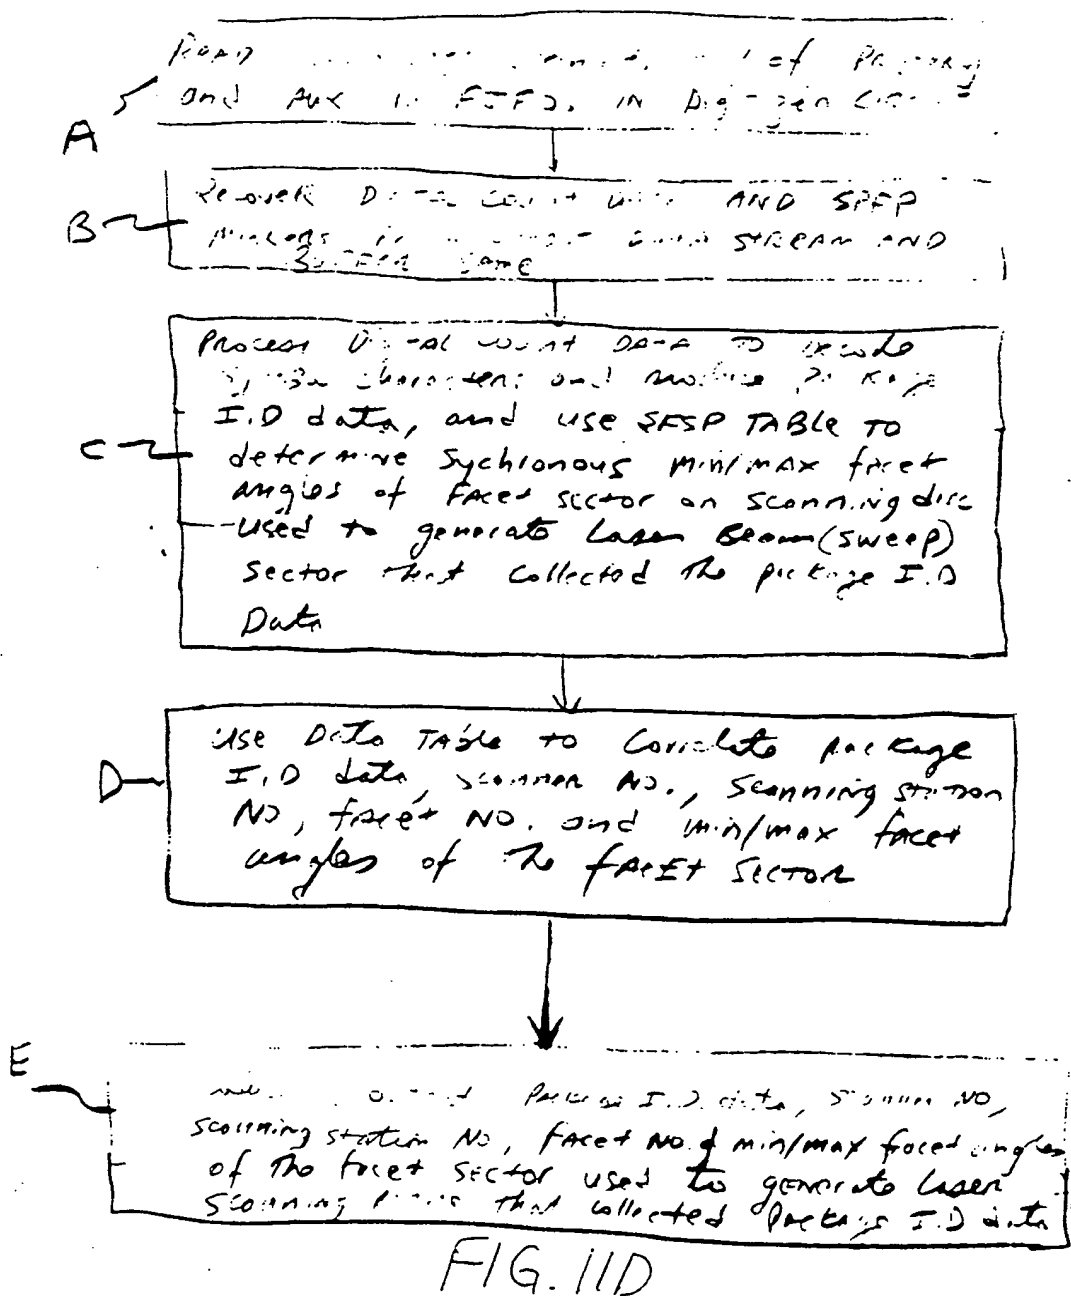 READ of Primary
and Aux in FIFOs in Digitizer
A
B
Recover Digital Count Data AND SPSP
markers in DATA STREAM AND
BUFFER SAME
Process Digital count DATA TO decode
Symbol characters and produce Package
I.D data, and use SFSP TABLE TO
C
determine Sychronous min/max facet
angles of Facet sector on scanning disc
used to generate Laser Beam (sweep)
Sector that collected the package I.D
Data
Use Data TABLE to Correlate package
D
I.D data, scanner NO., Scanning station
NO, facet NO. and min/max facet
angles of the fAcEt SECTOR
E
Package I.D. data, Scanner NO,
scanning station NO, facet NO. & min/max facet angles
of the facet sector used to generate laser
scanning that collected package I.D data
FIG. 11D